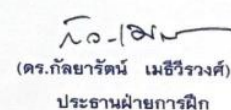 (ดร.กัลยารัตน์ เมธีวีรวงศ์)
ประธานฝ่ายการฝึก